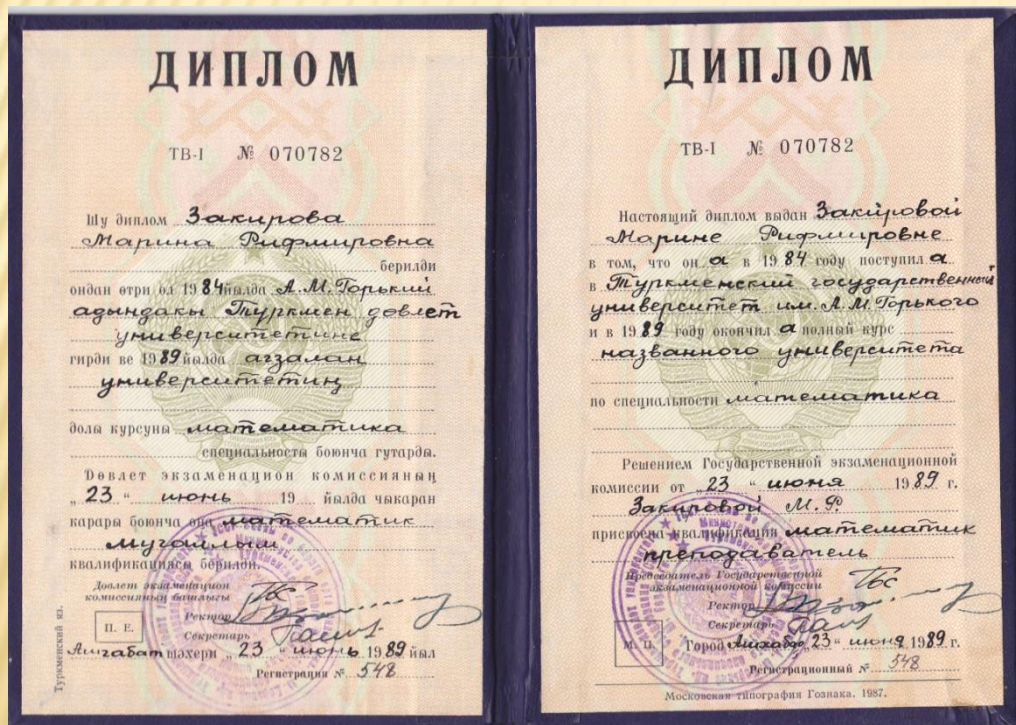 ДИПЛОМ
ТВ-I № 070782
Шу диплом Закирова
Марина Рифмировна
берилди
ондан өтри ол 1984 йылда А.М.Горький
адындакы Түркмен дөвлет
университетине
гирди ве 1989 йылда агзалан
университетиң
долы курсуны математика
специальносты боюнча гутарды.
Дөвлет экзаменацион комиссияның
„23“ июнь 19 йылда чыкаран
карары боюнча оңа математик
мугаллым
квалификациясы берилди.
Дөвлет экзаменацион
комиссияның башлыгы
Ректор
Секретарь
П. Е.
Ашгабат шәхери „23“ июнь 1989 йыл
Регистрация № 548
Туркменский яз.
ДИПЛОМ
ТВ-I № 070782
Настоящий диплом выдан Закировой
Марине Рифмировне
в том, что он а в 1984 году поступил а
в Туркменский государственный
университет им. А.М.Горького
и в 1989 году окончил а полный курс
названного университета
по специальности математика
Решением Государственной экзаменационной
комиссии от „23“ июня 1989 г.
Закировой М.Р.
присвоена квалификация математик
преподаватель
Председатель Государственной
экзаменационной комиссии
Ректор
Секретарь
М. П.
Город Ашхабад „23“ июня 1989 г.
Регистрационный № 548
Московская типография Гознака. 1987.